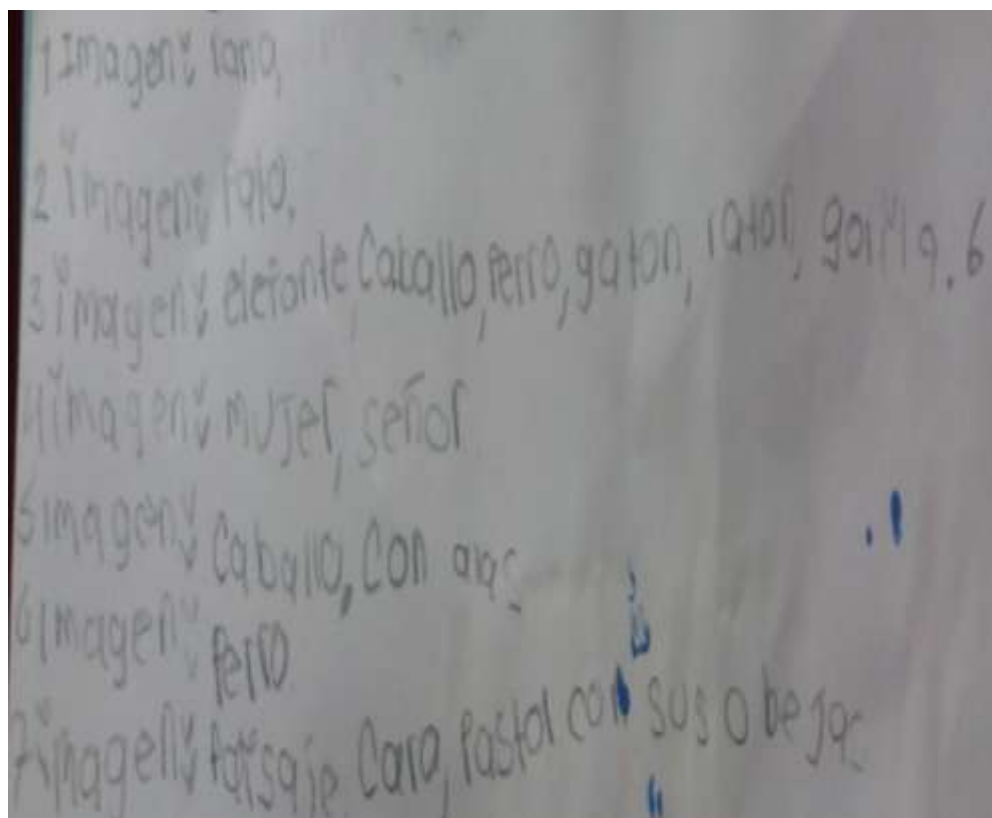 1 Imagen:
2 imagen:
3 imagen: elefante, Caballo, perro, gaton, raton, gorila. 6
4 imagen: mujer, señor
5 imagen: Caballo, con alas
6 imagen: perro
7 imagen: Paisaje Cara, Pastor con sus obejas